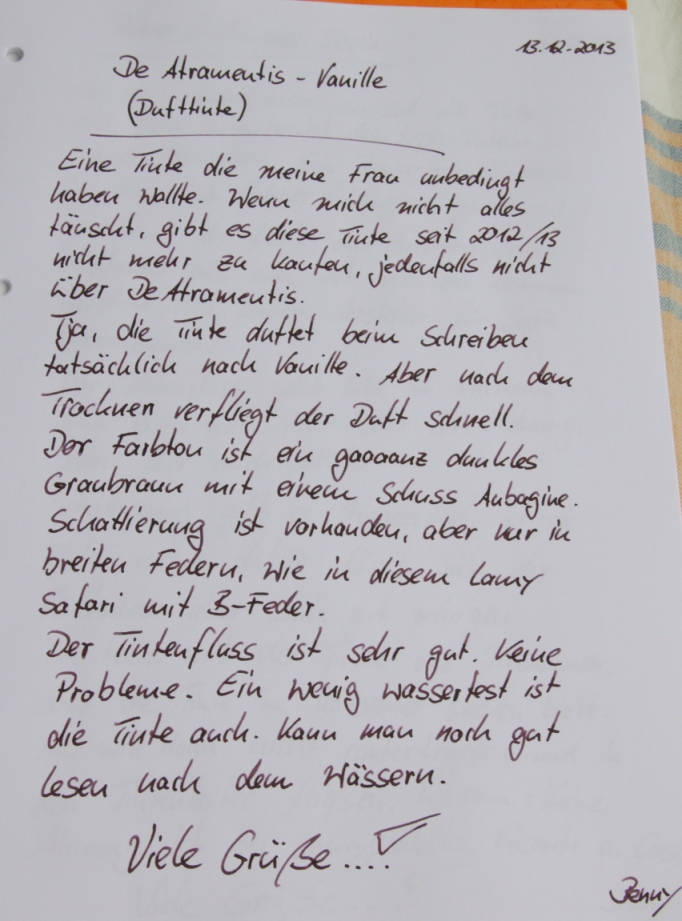 13.12.2013
De Atramentis - Vanille
(Dufttinte)
Eine Tinte die meine Frau unbedingt
haben wollte. Wenn mich nicht alles
täuscht, gibt es diese Tinte seit 2012/13
nicht mehr zu kaufen, jedenfalls nicht
über De Atramentis.
Tja, die Tinte duftet beim Schreiben
tatsächlich nach Vanille. Aber nach dem
Trocknen verfliegt der Duft schnell.
Der Farbton ist ein gaoaanz dunkles
Graubraun mit einem Schuss Aubagine.
Schattierung ist vorhanden, aber nur in
breiten Federn, wie in diesem Lamy
Safari mit B-Feder.
Der Tintenfluss ist sehr gut. Keine
Probleme. Ein wenig wasserfest ist
die Tinte auch. Kann man noch gut
lesen nach dem Wässern.
Viele Grüße....